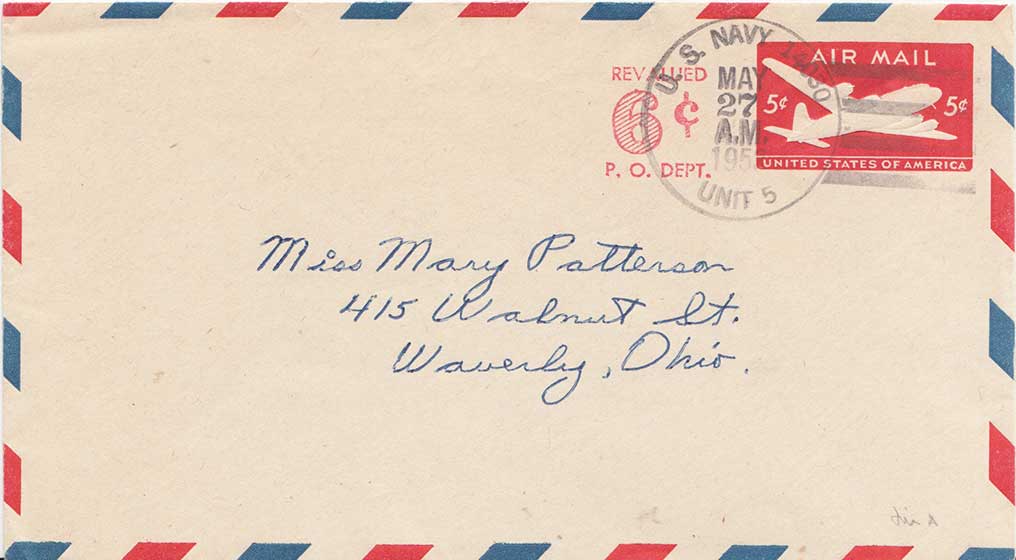 U. S. NAVY
MAY
27
A.M.
UNIT 5
REVALUED
6¢
P. O. DEPT.
AIR MAIL
5¢ 5¢
UNITED STATES OF AMERICA
Miss Mary Patterson
415 Walnut St.
Waverly, Ohio.